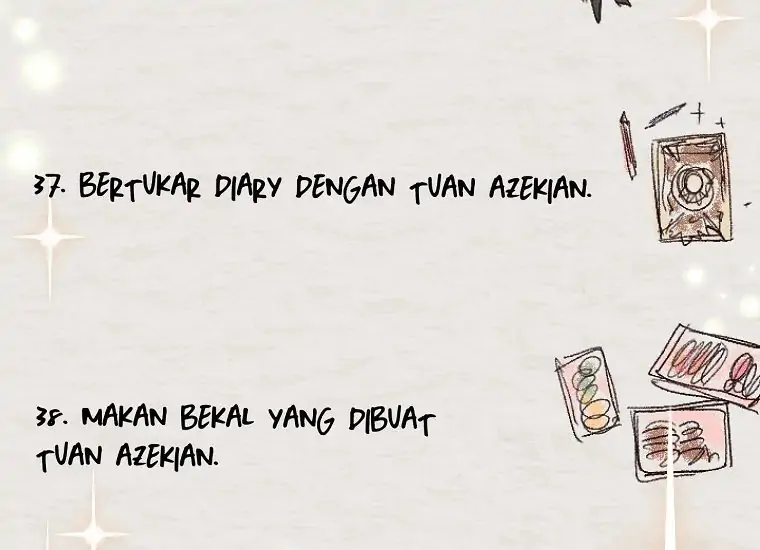 37. BERTUKAR DIARY DENGAN TUAN AZEKIAN.
38. MAKAN BEKAL YANG DIBUAT
TUAN AZEKIAN.